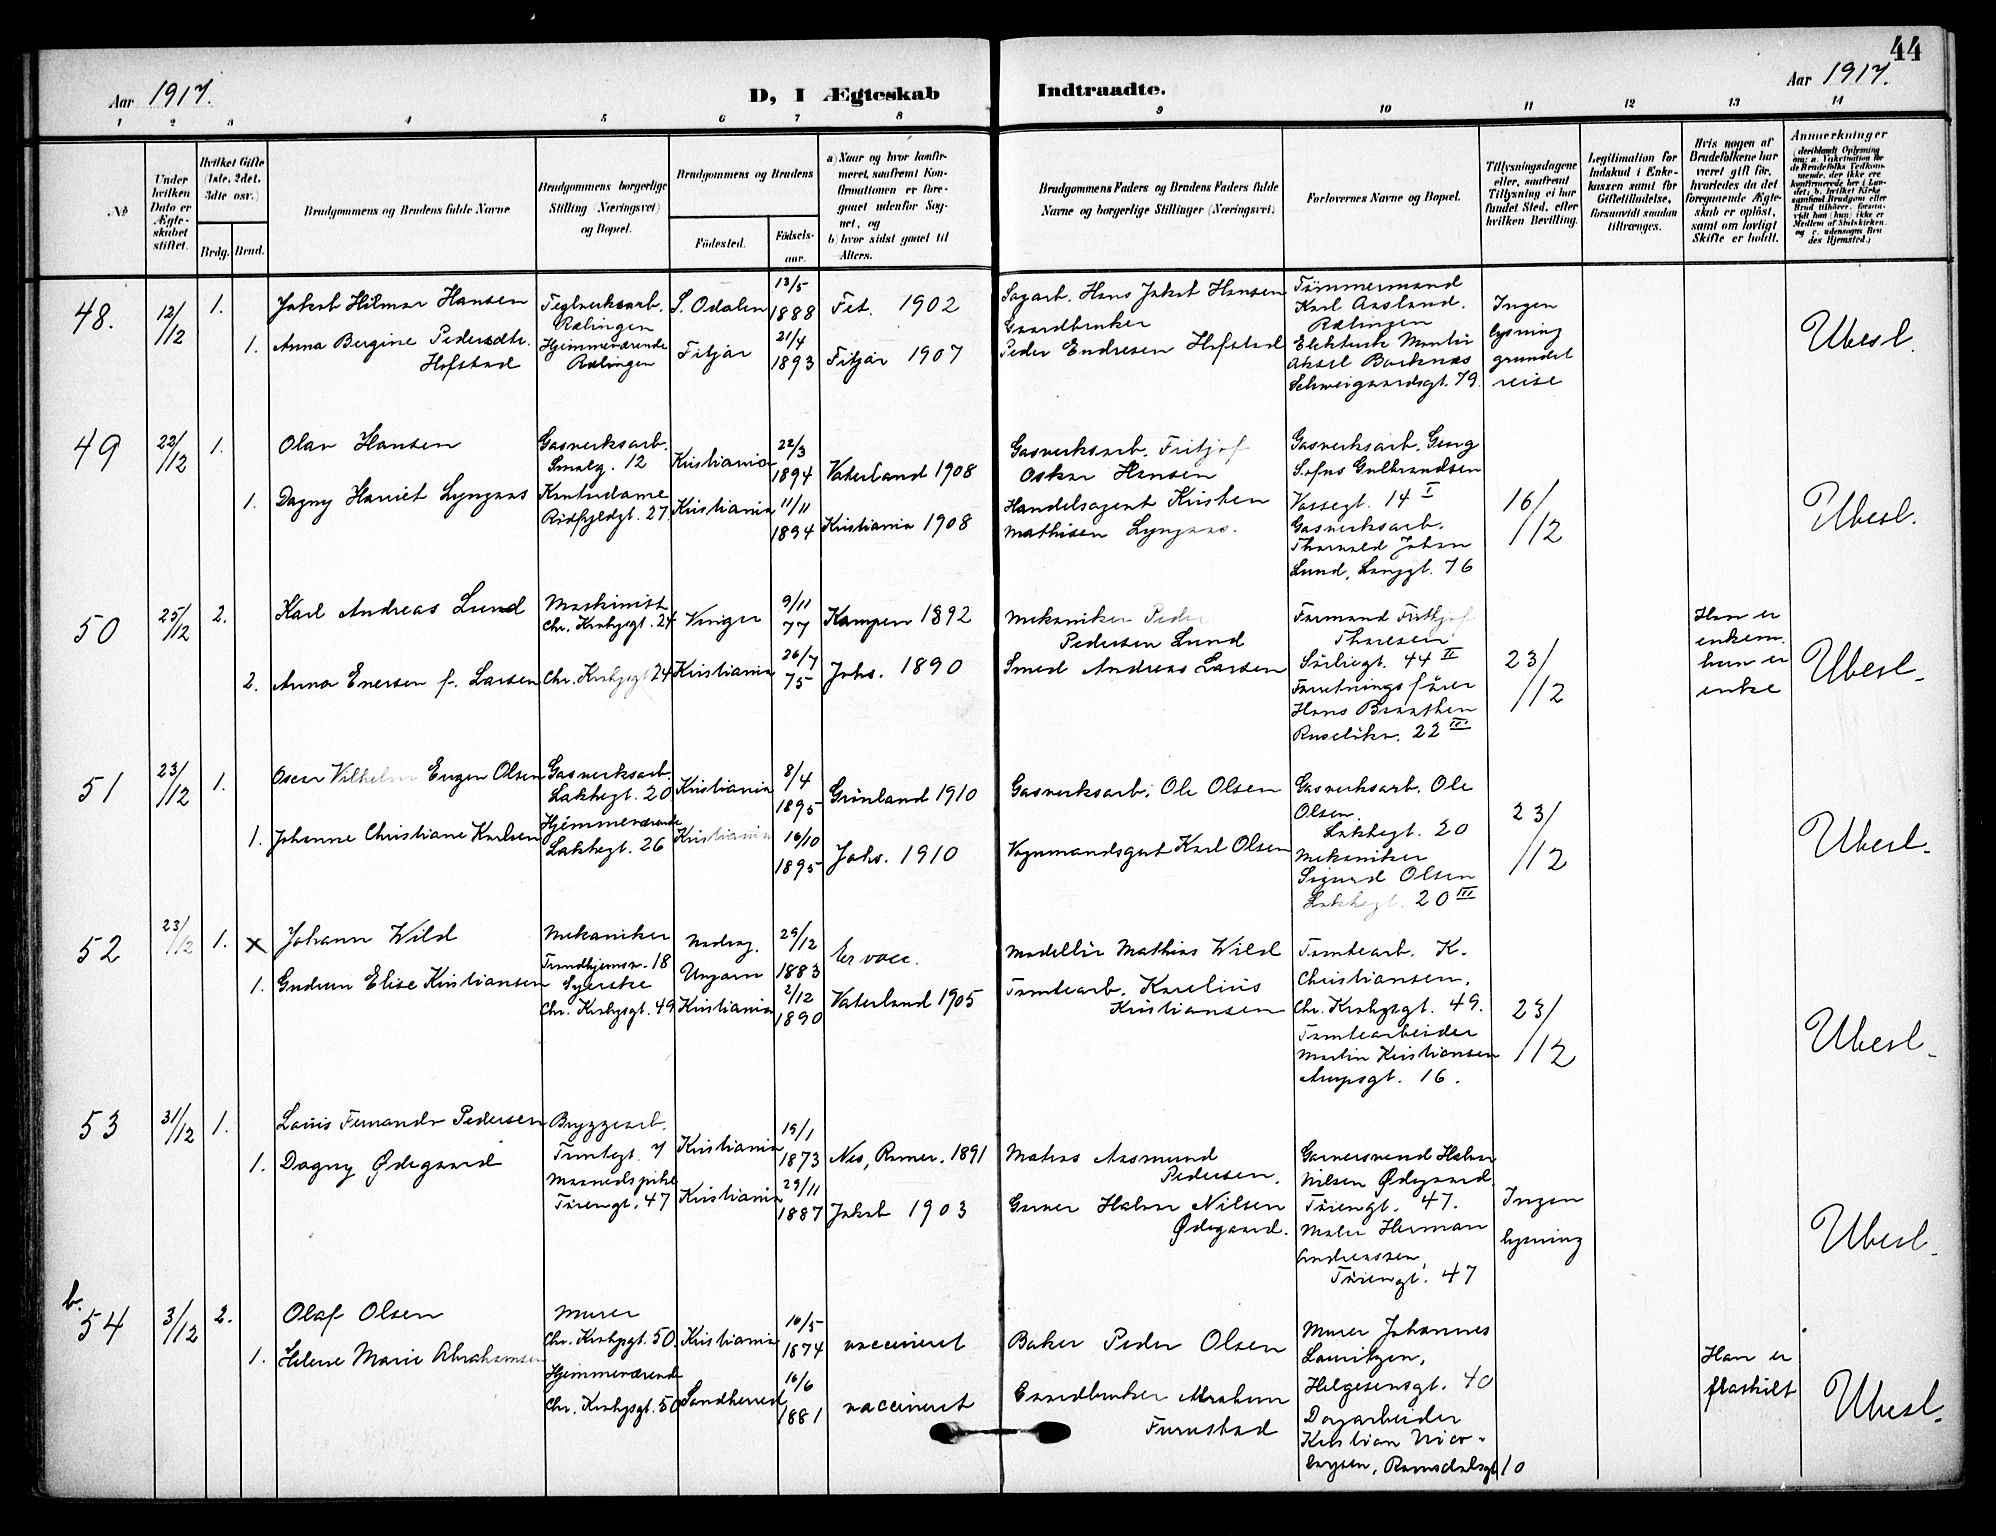 44
Aar 1917.
D, I Ægteskab Indtraadte.
Aar 1917.
1 2 3 4 5 6 7 8 9 10 11 12 13 14
No
Under hvilken Dato er Ægteskabet stiftet.
Hvilket Gifte (1ste, 2det, 3dte osv.)
Brdg. Brud.
Brudgommens og Brudens fulde Navne
Brudgommens borgerlige Stilling (Næringsvei) og Bopæl.
Brudgommens og Brudens
Fødested.
Fødselsaar.
a) Naar og hvor konfirmeret, saafremt Konfirmationen er foregaaet udenfor Sognet, og
b) hvor sidst gaaet til Alters.
Brudgommens Faders og Brudens Faders fulde Navne og borgerlige Stillinger (Næringsvei)
Forlovernes Navne og Bopæl.
Tillysningsdagene eller, saafremt Tillysning ei har fundet Sted, efter hvilken Bevilling.
Legitimation for Indskud i Enkekassen samt for Giftetilladelse, forsaavidt saadan tiltrænges.
Hvis nogen af Brudefolkene har været gift før, hvorledes da det foregaaende Ægteskab er opløst, samt om lovligt Skifte er holdt.
Anmerkninger
48.
12/12
1.
Jakob Hilmar Hansen
Teglverksarb.
Rælingen
S. Odalen
13/5
1888
Fet. 1902
Sagarb. Hans Jakob Hansen
Tømmermand
Karl Aasland.
Rælingen
1. Anna Bergine Pedersdtr.
Hofstad
Hjemmeværende
Rælingen
Fitjar
21/4
1893
Fitjar 1907
Gaardbruker
Peder Endresen Hofstad
Elektrisk Montør
Aksel Barknæs
Schweigaardsgt. 79
Ingen
lysning
grundet
reise
Ubesl.
49
22/12
1.
Olav Hansen
Gasverksarb.
Smalg. 12
Kristiania
22/3
1894
Vaterland 1908
Gasverksarb. Fritjof
Oskar Hansen
Gasverksarb. Georg
Sofus Gulbrandsen
Vossegt. 14 I
1. Dagny Harriet Lyngaas
Kontordame
Ridfyldgt. 27
Kristiania
11/11
1894
Kristiania 1908
Handelsagent Kristen
Mathisen Lyngaas.
Gasverksarb.
Thorvald Johan
Lund, Langgt. 76
16/12
Ubesl.
50
25/12
2.
Karl Andreas Lund
Maskinist
Chr. Krohgsgt. 24
Vinger
9/11
77
Kampen 1892
Mekaniker Peder
Pedersen Lund
Formand Frithjof
Thoresen
Sørligt. 44 II
2. Anna Enersen f. Larsen
Chr. Krohgsgt 24
Kristiania
26/7
75
Johs. 1890
Smed Andreas Larsen
Forretningsfører
Hans Braathen
22 III
23/12
Han er
enkem.
hun er
enke
Ubesl.
51
23/12
1.
Oscar Vilhelm Eugen Olsen
Gasverksarb.
Lakkegt. 20
Kristiania
8/4
1895
Grønland 1910
Gasverksarb. Ole Olsen
Gasverksarb. Ole
Olsen.
Lakkegt. 20
1. Johanne Christiane Karlsen
Hjemmeværende
Lakkegt. 26
Kristiania
10/10
1895
Johs. 1910
Vognmandsgut Karl Olsen
Mekaniker
Sigurd Olsen
Lakkegt. 20 III
23/12
Ubesl.
52
23/12
1. x
Johann Wild
Mekaniker
Trondhjemsv. 18
Ungarn
29/12
1883
Er vacc.
Modellør Mathias Wild
Tomtearb. K.
Christiansen.
Chr. Krohgsgt. 49.
1. Gudrun Elise Kristiansen
Syerske
Chr. Krohgsgt. 49
Kristiania
2/12
1890
Vaterland 1905
Tomtearb. Karelius
Kristiansen
Tomtearbeider
Martin Kristiansen
Aurupsgt. 16.
23/12
Ubesl.
53
31/12
1.
Louis Fernando Pedersen
Bryggearb.
Tomtegt. 7
Kristiania
19/1
1873
Nes, Romer. 1891
Matros Aasmund
Pedersen.
Garversvend Halvor
Nilsen Ødegaard
Tøiengt. 47.
1. Dagny Ødegaard
Maanedspike
Tøiengt. 47
Kristiania
29/11
1887
Jakob 1903
Garver Halvor Nilsen
Ødegaard.
Maler Herman
Andreassen,
Tøiengt. 47
Ingen
lysning
Ubesl.
b.
54
3/12
2.
Olaf Olsen
Murer
Chr. Krohgsgt. 50.
Kristiania
10/5
1874
vaccineret
Baker Peder Olsen
Murer Johannes
Lauritzen,
Helgesensgt. 40
1. Helene Marie Abrahamsen
Hjemmeværende
Chr. Krohgsgt. 50
Sandherred
10/6
1881
vaccineret
Gaardbruker Abraham
Furustad
Dagarbeider
Kristian Nico-
laysen, Romsdalsgt 10
Han er
fraskilt
Ubesl.